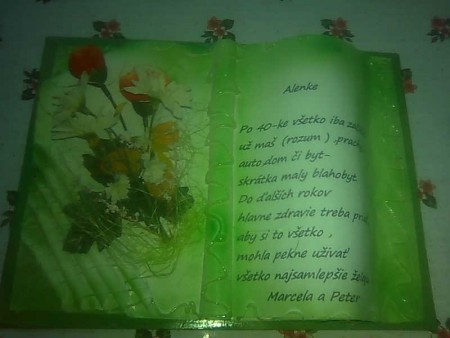 Alenke
Po 40-ke všetko iba
už maš (rozum ),prachy
auto,dom či byt-
skrátka maly blahobyt.
Do ďalších rokov
hlavne zdravie treba
aby si to všetko ,
mohla pekne uživať
všetko najsamlepšie
Marcela a Peter